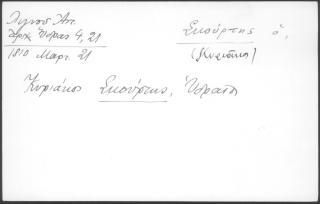 Λιγνοῦ Ἀπ.
Ἀρχ. Ὕδρας 4, 21
1810 Μαρτ. 21
Σκούρτης ὁ,
(Κυριάκος)
Κυριάκος Σκούρτης, Ὑδραῖος